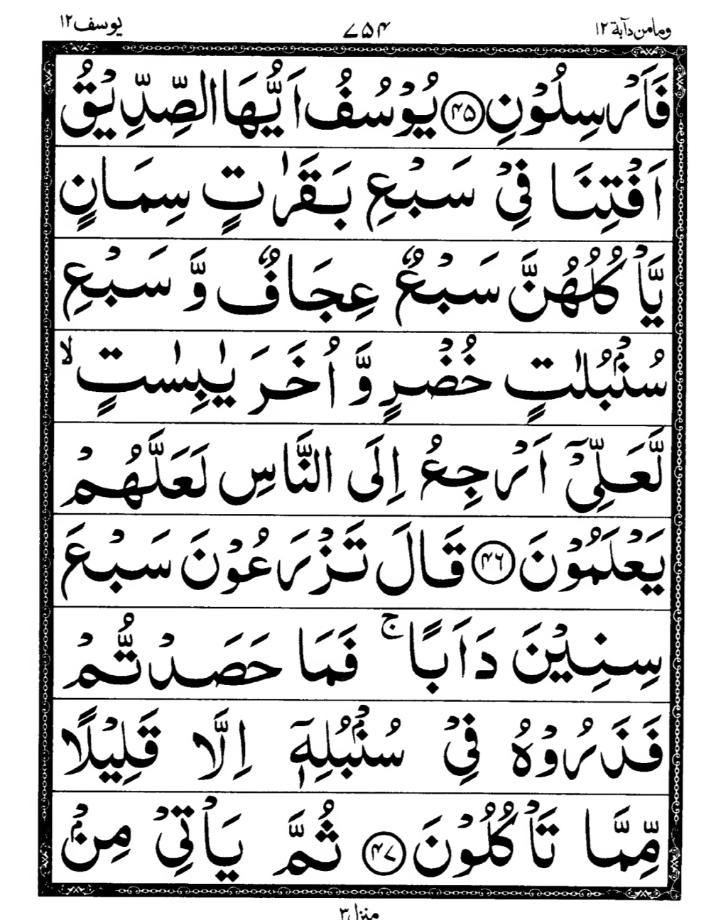 ومامن دآبة ١٢ ٧٥۴ يوسف ١٢
فَاَرْسِلُوْنِ ۴۵ يُوْسُفُ اَيُّهَا الصِّدِّيْقُ
اَفْتِنَا فِيْ سَبْعِ بَقَرٰتٍ سِمَانٍ
يَّاْكُلُهُنَّ سَبْعٌ عِجَافٌ وَّ سَبْعِ
سُنْۢبُلٰتٍ خُضْرٍ وَّ اُخَرَ يٰبِسٰتٍ ۙ
لَّعَلِّيْٓ اَرْجِعُ اِلَى النَّاسِ لَعَلَّهُمْ
يَعْلَمُوْنَ ۴۶ قَالَ تَزْرَعُوْنَ سَبْعَ
سِنِيْنَ دَاَبًا ۚ فَمَا حَصَدْتُّمْ
فَذَرُوْهُ فِيْ سُنْۢبُلِهٖٓ اِلَّا قَلِيْلًا
مِّمَّا تَاْكُلُوْنَ ۴۷ ثُمَّ يَاْتِيْ مِنْۢ
منزل ٣